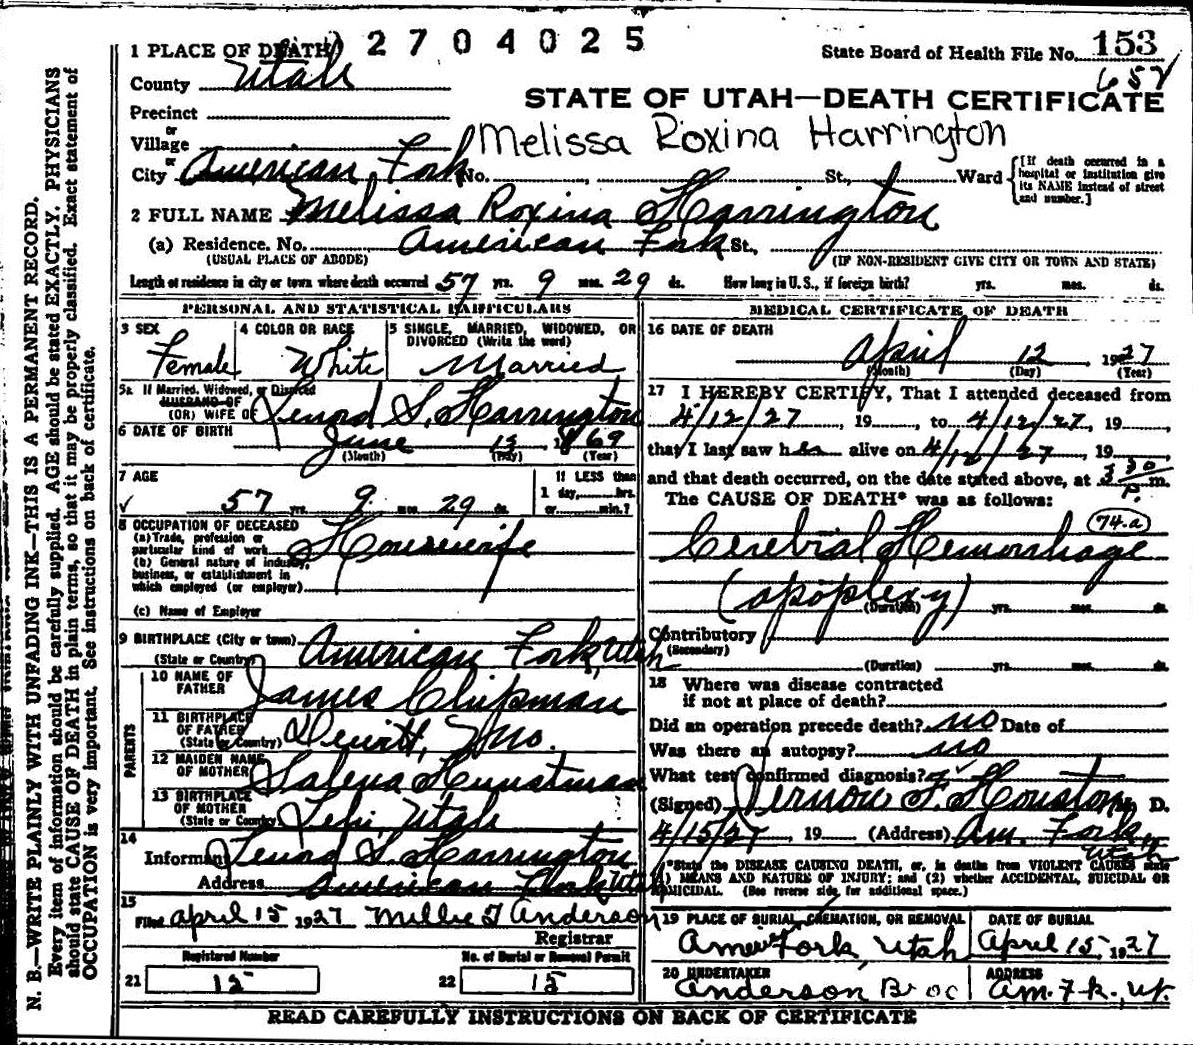 2704025
State Board of Health File No. 153
652
STATE OF UTAH—DEATH CERTIFICATE
1 PLACE OF DEATH
County Utah
Precinct
or
Village Melissa Roxina Harrington
or
City American Fork No. St., Ward [If death occurred in a hospital or institution give its NAME instead of street and number.]
2 FULL NAME Melissa Roxina Harrington
(a) Residence, No. American Fork St.,
(USUAL PLACE OF ABODE) (IF NON-RESIDENT GIVE CITY OR TOWN AND STATE)
Length of residence in city or town where death occurred 57 yrs. 9 mos. 29 ds. How long in U.S., if foreign birth? yrs. mos. ds.
PERSONAL AND STATISTICAL PARTICULARS
3 SEX 4 COLOR OR RACE 5 SINGLE, MARRIED, WIDOWED, OR
DIVORCED (Write the word)
Female White Married
5a If Married, Widowed, or Divorced
HUSBAND OF
(OR) WIFE OF Lenord S. Harrington
6 DATE OF BIRTH June 13 1869
(Month) (Day) (Year)
7 AGE If LESS than
57 yrs. 9 mos. 29 ds. 1 day, hrs.
or min.?
8 OCCUPATION OF DECEASED
(a) Trade, profession or
particular kind of work Housewife
(b) General nature of industry,
business, or establishment in
which employed (or employer)
(c) Name of Employer
9 BIRTHPLACE (City or town) American Fork, Utah
(State or Country)
PARENTS
10 NAME OF
FATHER James Chipman
11 BIRTHPLACE
OF FATHER
(State or Country) Dewitt, Mo.
12 MAIDEN NAME
OF MOTHER Salena Huntsman
13 BIRTHPLACE
OF MOTHER
(State or Country) Lehi, Utah
14
Informant Lenord S. Harrington
Address American Fork Utah
15
Filed April 15 1927 Millie T Anderson
Registrar
Registered Number No. of Burial or Removal Permit
21 15 22 15
MEDICAL CERTIFICATE OF DEATH
16 DATE OF DEATH
April 12 1927
(Month) (Day) (Year)
17 I HEREBY CERTIFY, That I attended deceased from
4/12/27, 19, to 4/12/27, 19,
that I last saw her alive on 4/12/27, 19
and that death occurred, on the date stated above, at 3 30 P. m.
The CAUSE OF DEATH* was as follows:
74.a
Cerebral Hemorrhage
(apoplexy)
(Duration) yrs. mos. ds.
Contributory
(Secondary)
(Duration) yrs. mos. ds.
18 Where was disease contracted
if not at place of death?
Did an operation precede death? no Date of
Was there an autopsy? no
What test confirmed diagnosis?
(Signed) Vernon F. Houston M. D.
4/15/27, 19 (Address) Am. Fork
Utah
*State the DISEASE CAUSING DEATH, or, in deaths from VIOLENT CAUSES state
(1) MEANS AND NATURE OF INJURY; and (2) whether ACCIDENTAL, SUICIDAL OR
HOMICIDAL. (See reverse side for additional space.)
19 PLACE OF BURIAL, CREMATION, OR REMOVAL DATE OF BURIAL
Amer Fork, Utah April 15, 1927
20 UNDERTAKER ADDRESS
Anderson Bros Am. Fk., Ut.
READ CAREFULLY INSTRUCTIONS ON BACK OF CERTIFICATE
N. B.—WRITE PLAINLY WITH UNFADING INK—THIS IS A PERMANENT RECORD.
Every item of information should be carefully supplied. AGE should be stated EXACTLY. PHYSICIANS
should state CAUSE OF DEATH in plain terms, so that it may be properly classified. Exact statement of
OCCUPATION is very important. See instructions on back of certificate.